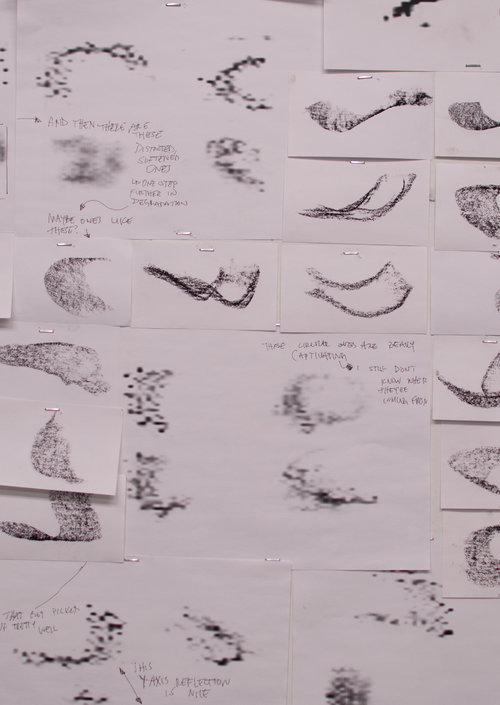 AND THEN THERE ARE
THESE
DISTORTED,
SOFTENED
ONES
ONE STEP
FURTHER IN
DEGRADATION
MAYBE ONES LIKE
THESE?
THESE CIRCULAR ONES ARE REALLY
CAPTIVATING
I STILL DON'T
KNOW WHERE
THEY'RE
COMING FROM
THAT GOT PICKED
UP PRETTY WELL
THIS
Y-AXIS REFLECTION
IS NICE